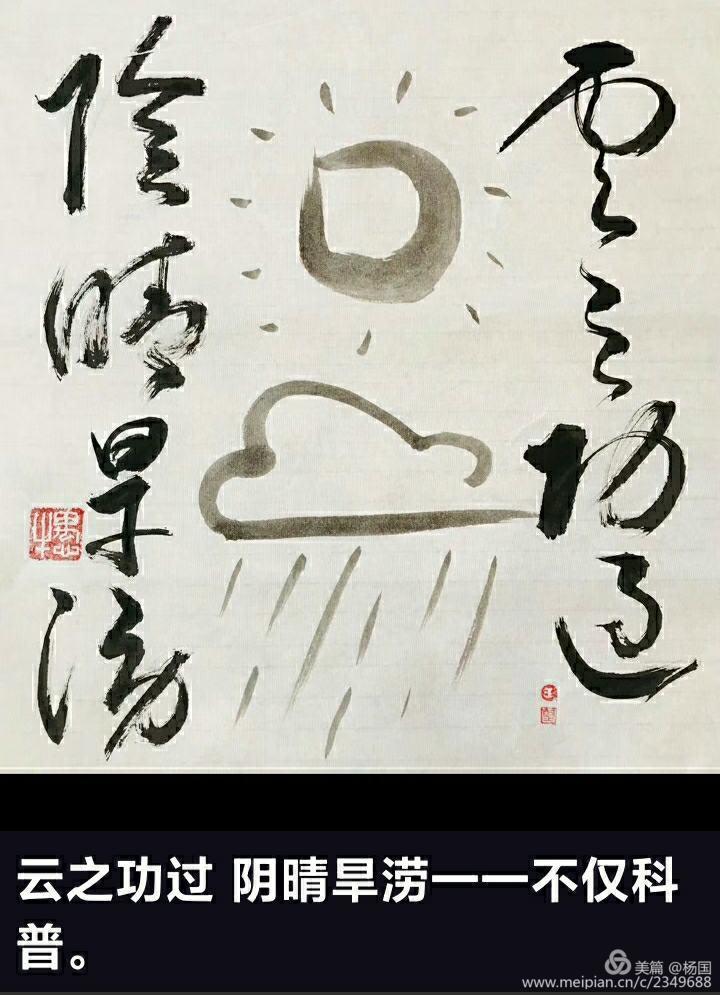 雲之功過
陰晴旱澇
云之功过 阴晴旱涝一一不仅科
普。
美篇 @杨国
www.meipian.cn/c/2349688